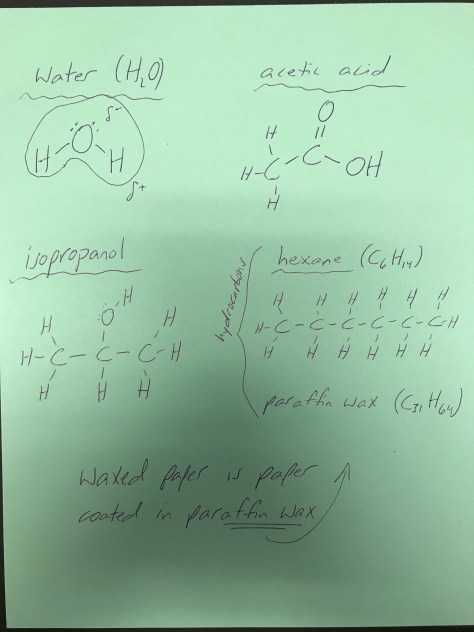 Water (H₂O)
δ-
O
H H
δ+
acetic acid
O
H
H-C-C-OH
H
isopropanol
H
O
H H
H-C-C-C-H
H H H
hydrocarbons
hexane (C₆H₁₄)
H H H H H H
H-C-C-C-C-C-C-H
H H H H H H
paraffin wax (C₃₁H₆₄)
Waxed paper is paper
coated in paraffin wax